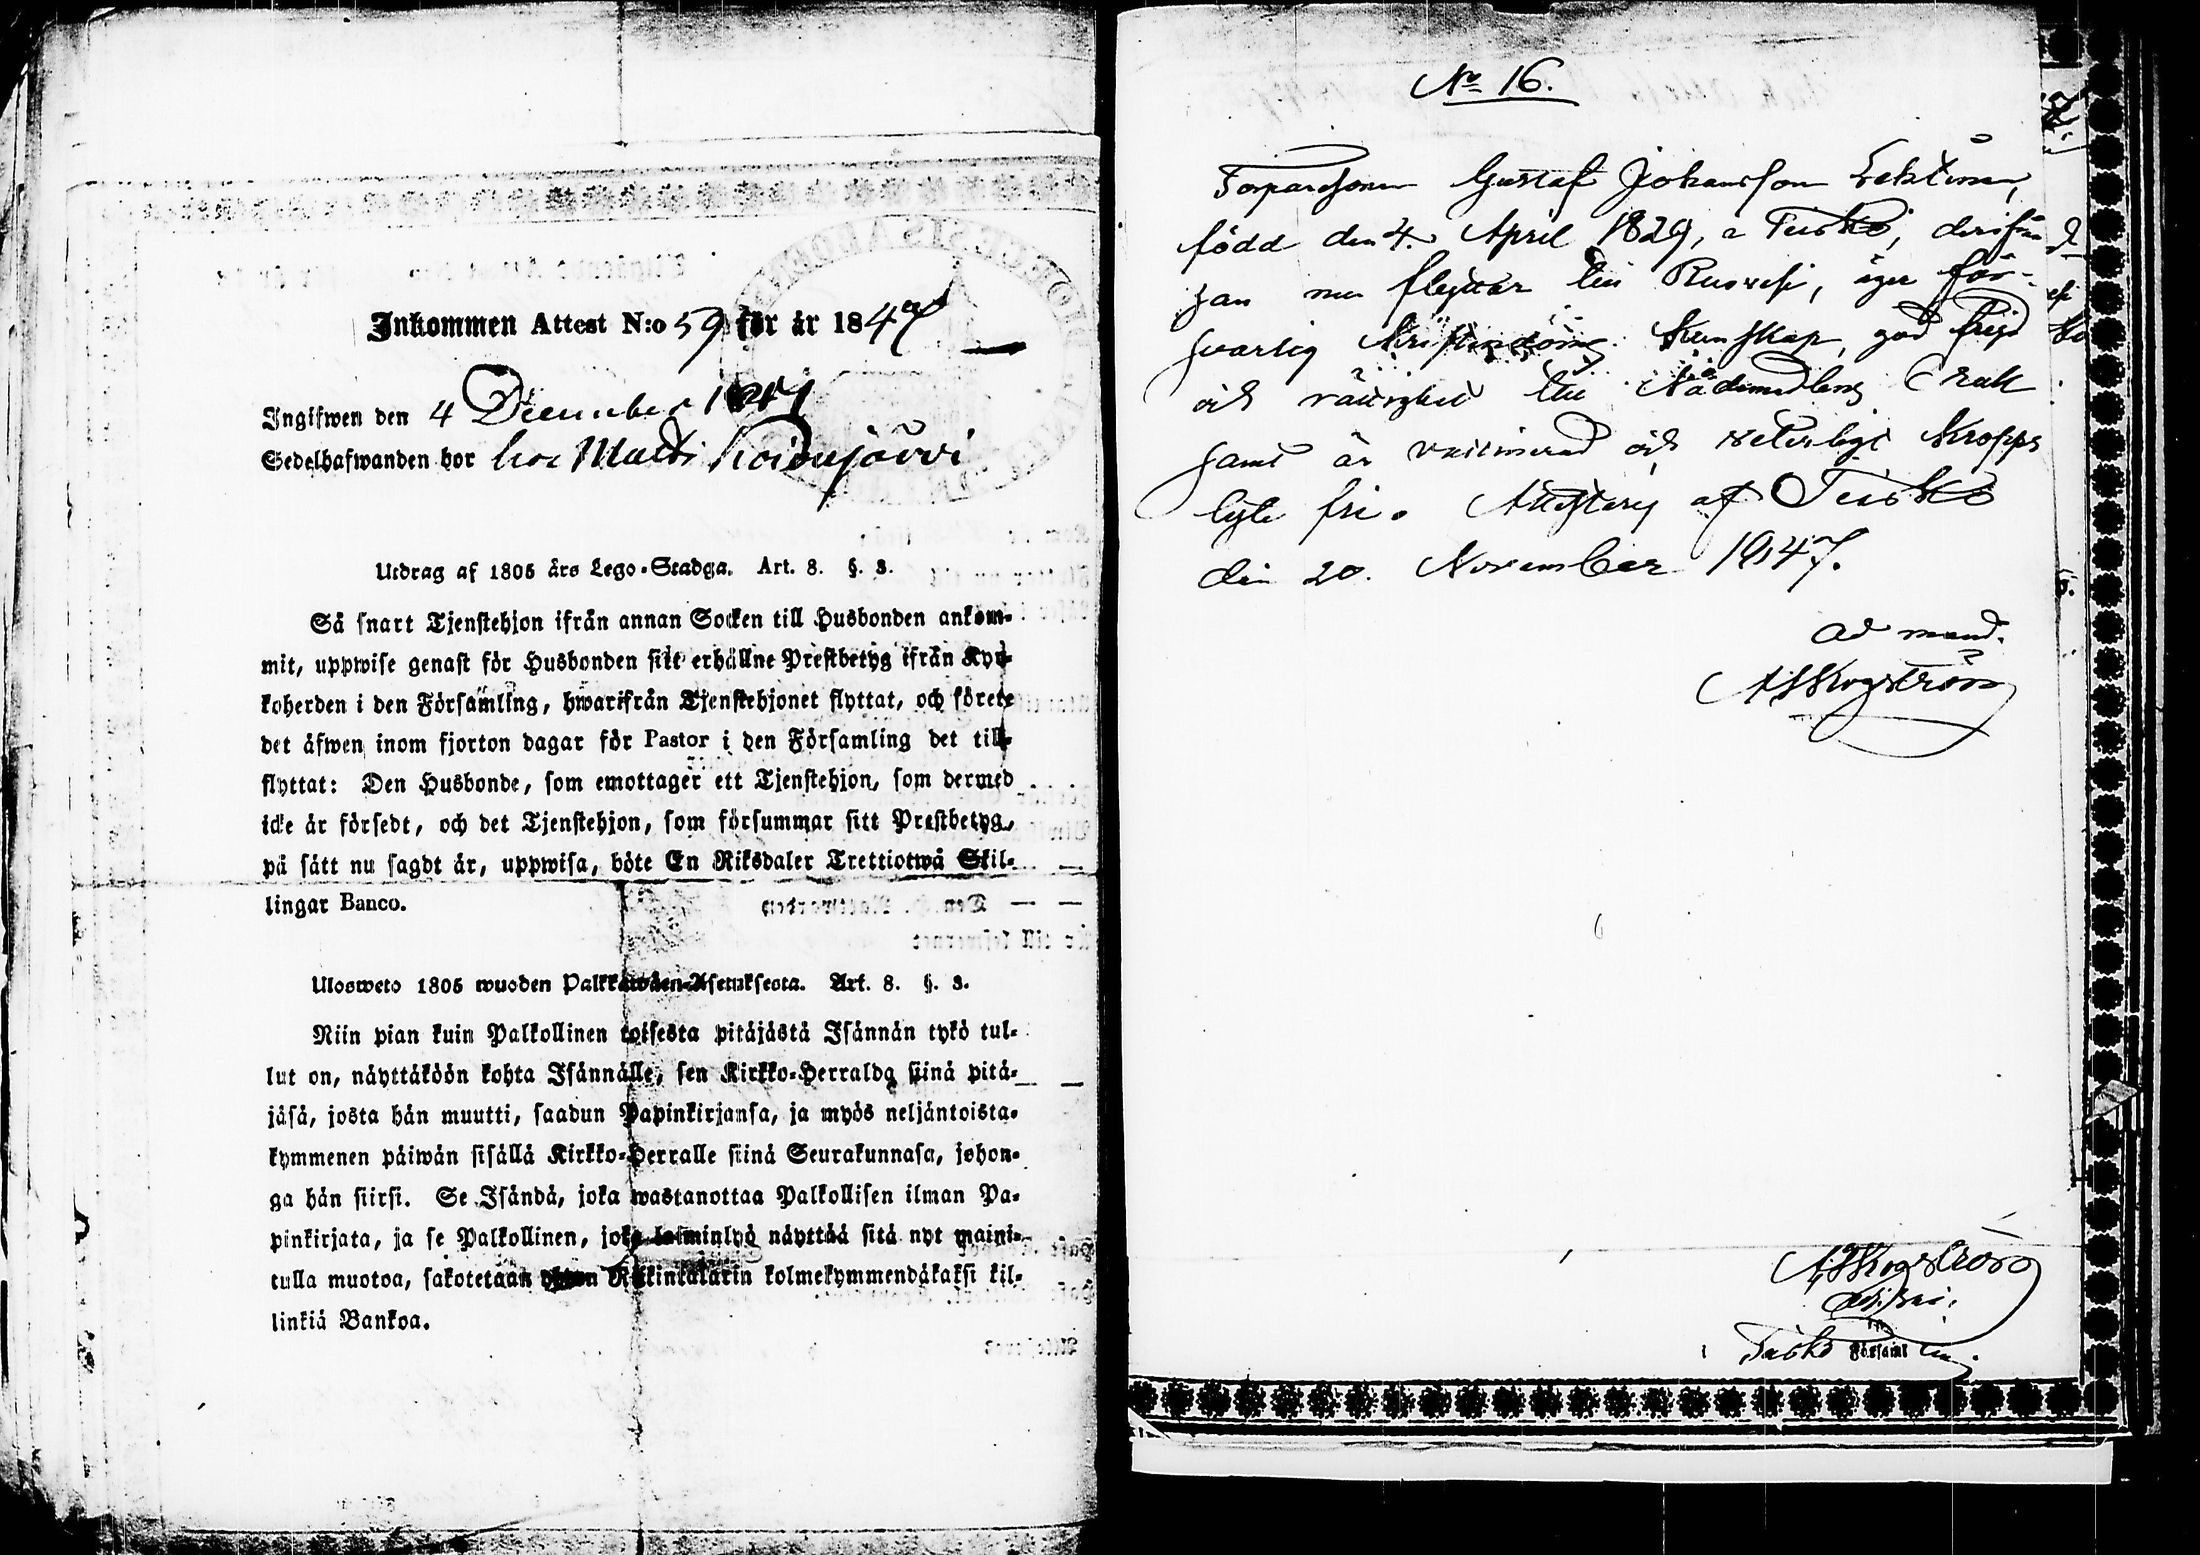 Inkommen Attest N:o 59 för år 1847
Ingifwen den 4 December 1847
Sedelhafwanden bor hos Matts Koidujärvi
Utdrag af 1805 års Lego-Stadga. Art. 8. §. 3.
Så snart Tjenstehjon ifrån annan Socken till Husbonden ankom-
mit, uppwise genast för Husbonden sitt erhållne Prestbetyg ifrån Kyr-
koherden i den Församling, hwarifrån Tjenstehjonet flyttat, och förete
det äfwen inom fjorton dagar för Pastor i den Församling det till-
flyttat: Den Husbonde, som emottager ett Tjenstehjon, som dermed
icke är försedt, och det Tjenstehjon, som försummar sitt Prestbetyg,
på sätt nu sagdt är, uppwisa, böte En Riksdaler Trettiotwå Skil-
lingar Banco.
Ulosweto 1805 wuoden Palkkawäen-Asetuksesta. Art. 8. §. 3.
Niin pian kuin Palkollinen toisesta pitäjästä Isännän tykö tul-
lut on, näyttäköön kohta Isännälle, sen Kirkko-Herralda siinä pitä-
jäsä, josta hän muutti, saadun Papinkirjansa, ja myös neljäntoista-
kymmenen päiwän sisällä Kirkko-Herralle siinä Seurakunnasa, johon-
ga hän siirsi. Se Isändä, joka wastanottaa Palkollisen ilman Pa-
pinkirjata, ja se Palkollinen, joka laiminlyö näyttää sitä nyt maini-
tulla muotoa, sakotetaan yhden Riikintalarin kolmekymmendäkaksi kil-
linkiä Bankoa.
No 16.
Torparesonen Gustaf Johansson Lehtinen,
född den 4. April 1829, i Teisko, derifrån
han nu flyttar till Ruovesi, äger för-
svarlig Kristendoms Kunskap, god frejd
och rättighet till Nådemedlens bruk
samt är vaccinerad och veterligt kropps
lyte fri. Attesteras af Teisko
den 20. November 1847.
Ad mand.
A Skogström
A Skogström
i Teisko Församling.